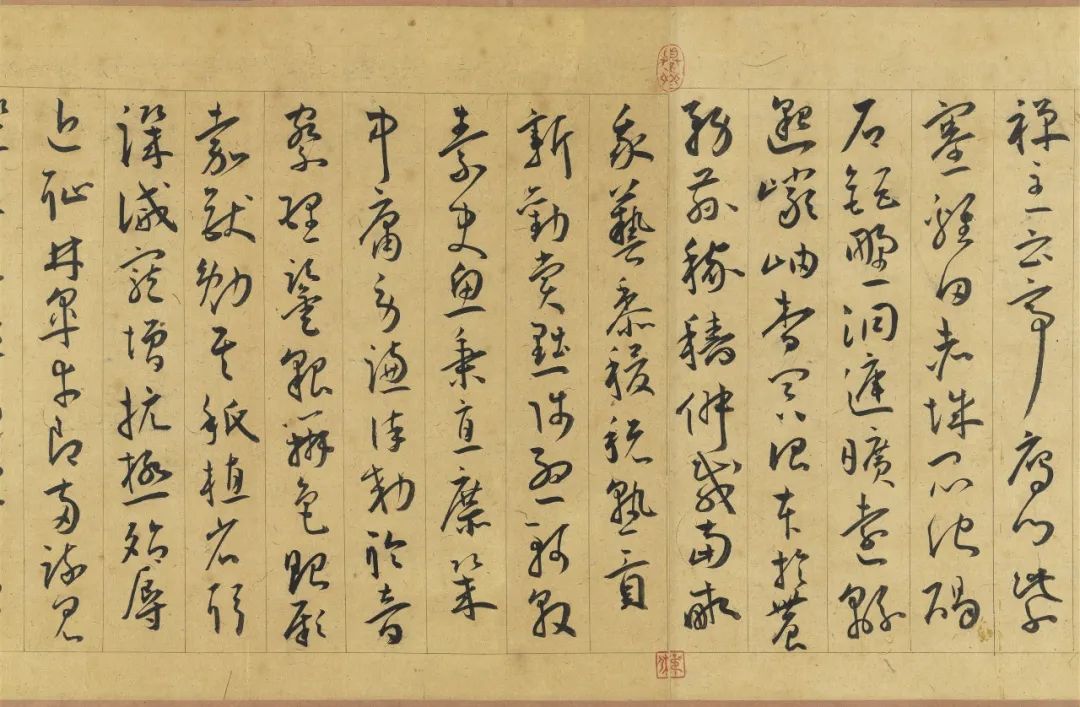 禪主云亭鴈門紫
塞雞田赤城昆池碣
石鉅野洞庭曠遠緜
邈巖岫杳冥治本於農
務茲稼穡俶載南畝
我藝黍稷稅熟貢
新勸賞黜陟孟軻敦
素史魚秉直庶幾
中庸勞謙謹勑聆音
察理鑒貌辨色貽厥
嘉猷勉其祗植省躬
譏誡寵增抗極殆辱
近恥林皋幸即兩疏見